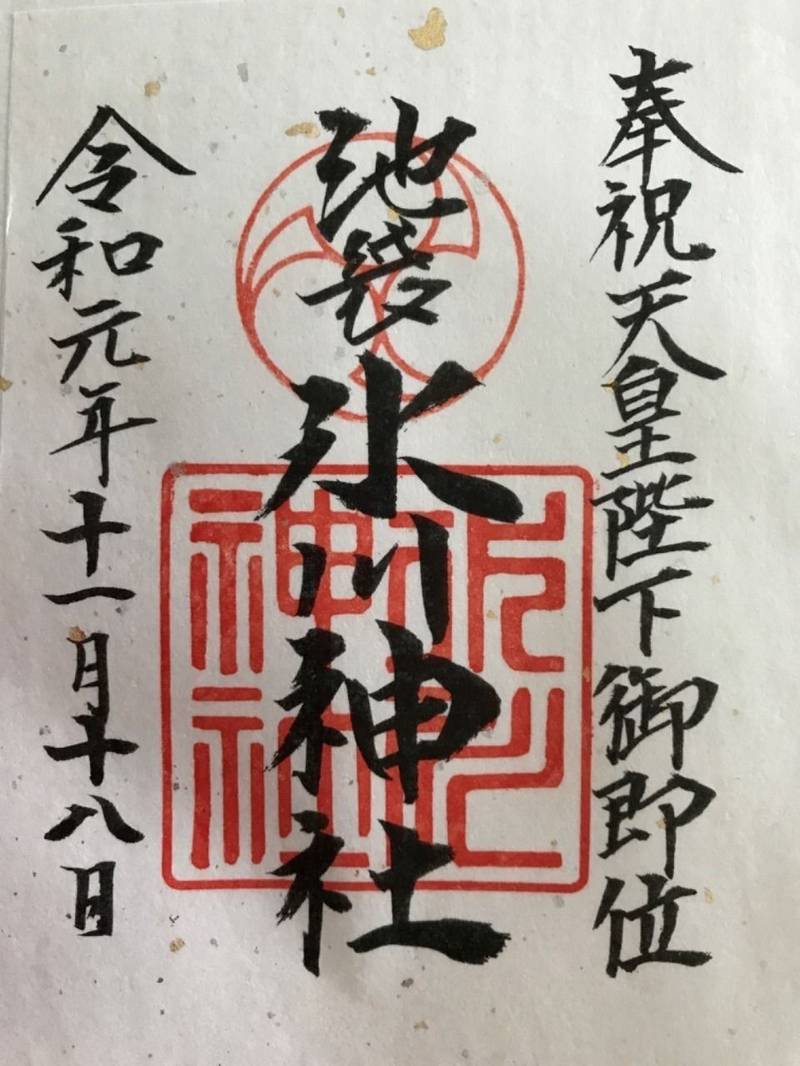 奉祝天皇陛下御即位
池袋氷川神社
令和元年十一月十八日